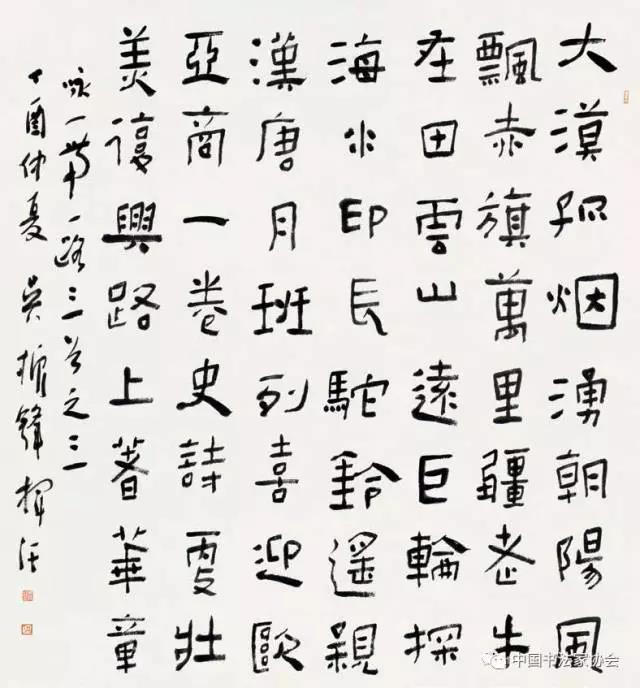 大漠孤烟湧朝陽風
飄赤旗萬里疆老牛
在田雲山遠巨輪探
海水印長駝鈴遥親
漢唐月班列喜迎歐
亞商一卷史詩更壮
美復興路上著華章
咏一帶一路三首之三
丁酉仲夏 吴振鋒揮汗
中国书法家协会